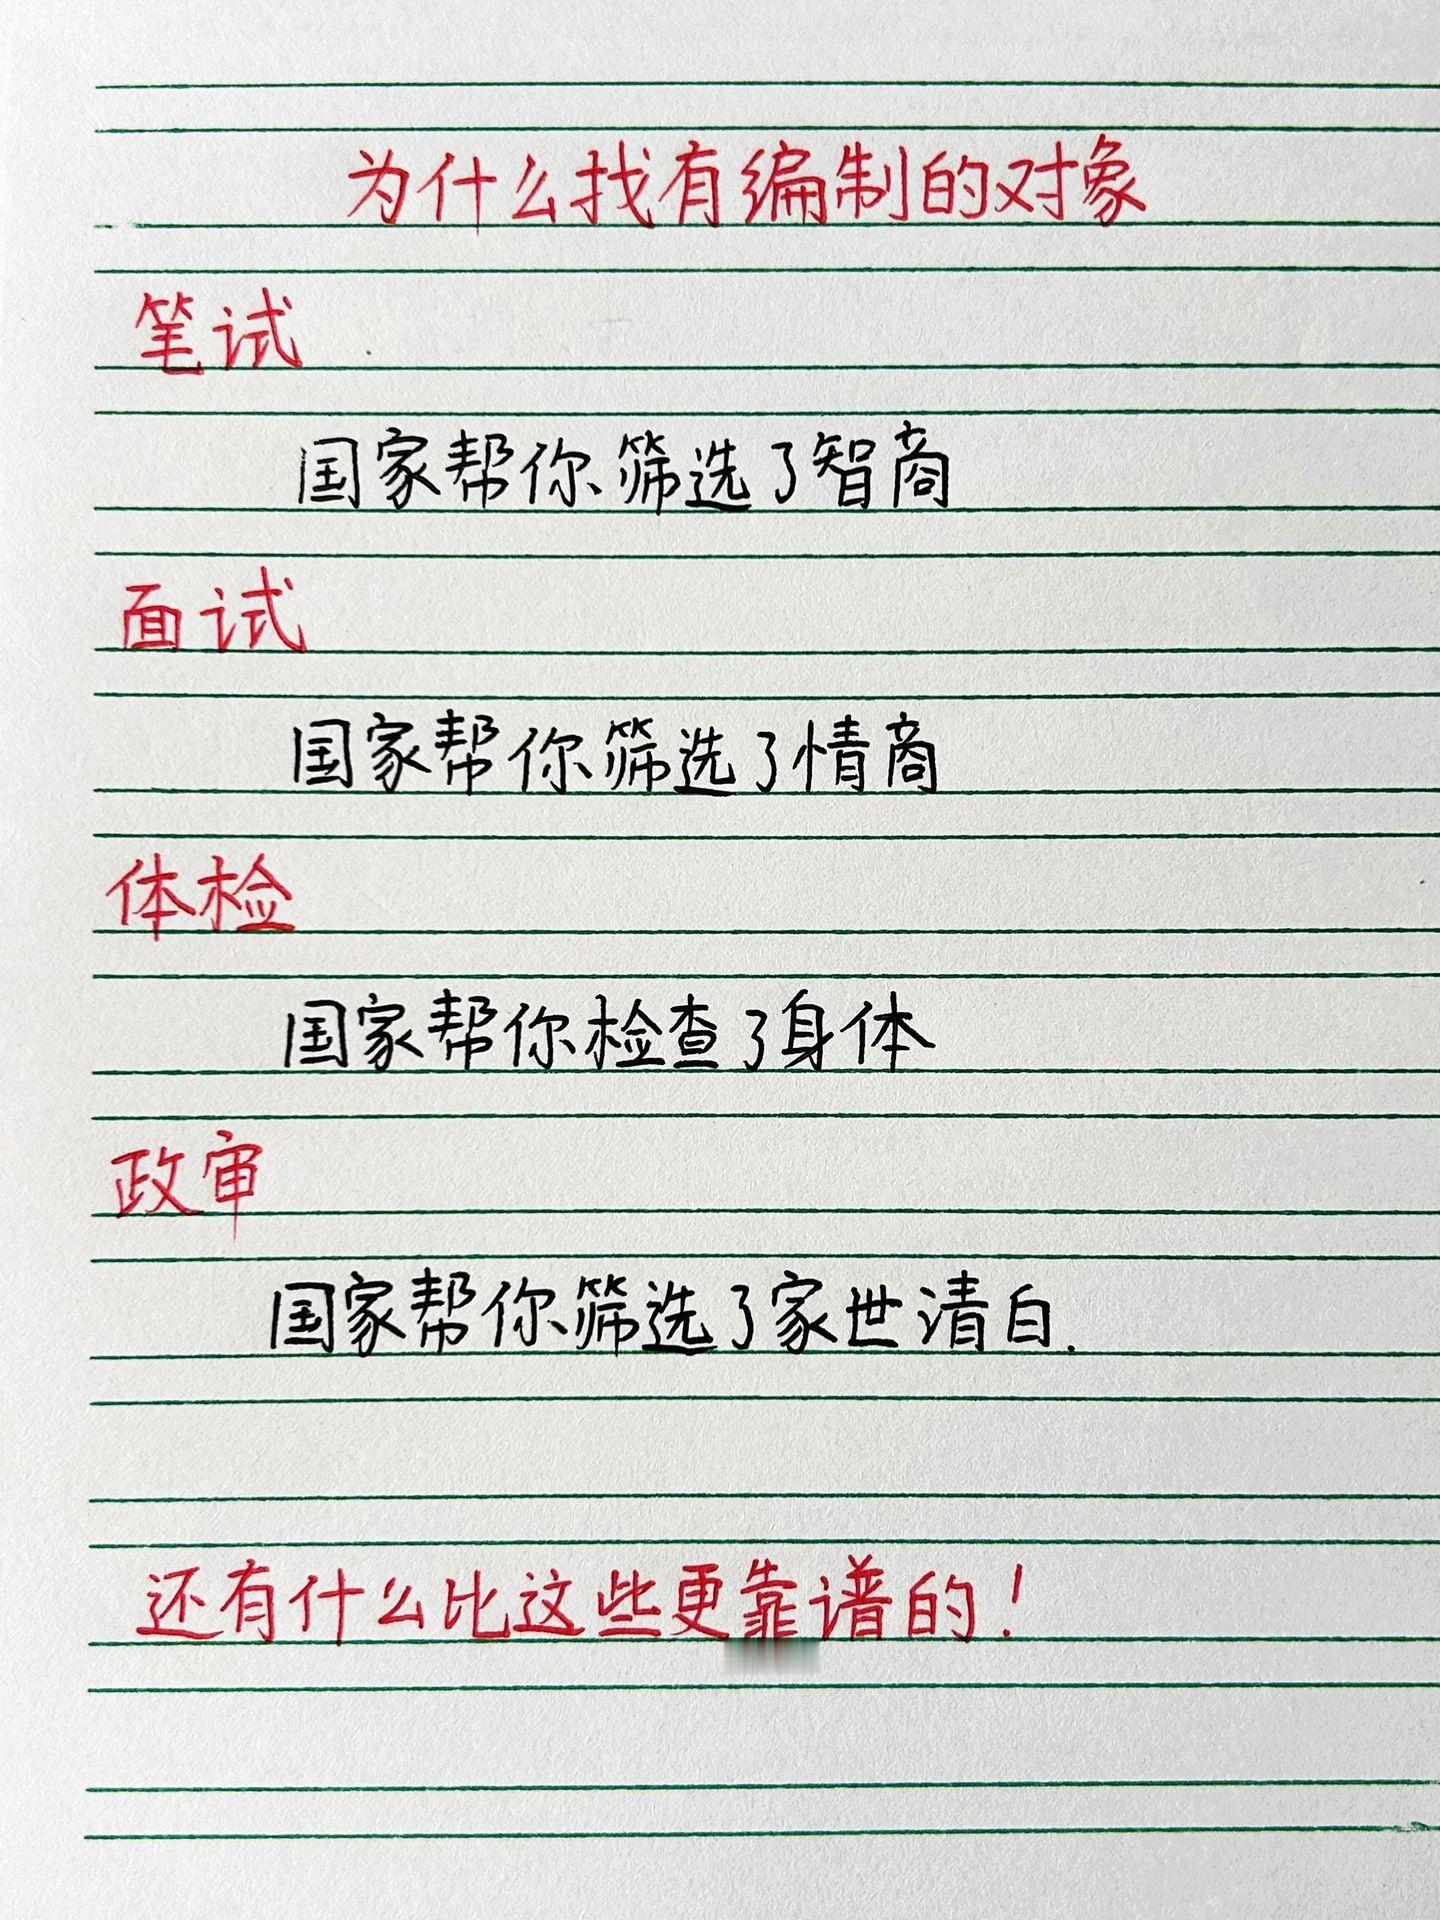 为什么找有编制的对象
笔试
国家帮你筛选了智商
面试
国家帮你筛选了情商
体检
国家帮你检查了身体
政审
国家帮你筛选了家世清白.
还有什么比这些更靠谱的!